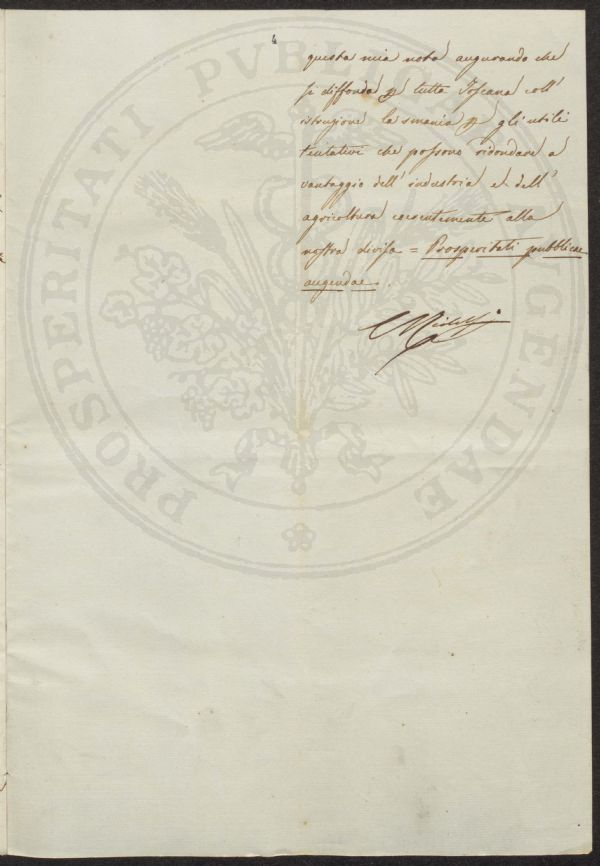 4
questa mia nota augurando che
si diffonda p tutta Toscana coll'
istruzione la smania p gli utili
tentativi che possono ridondare a
vantaggio dell'industria e dell'
agricoltura coerentemente alla
nostra divisa = Prosperitati pubblicae
augendae.
PROSPERITATI PVBLICAE AVGENDAE